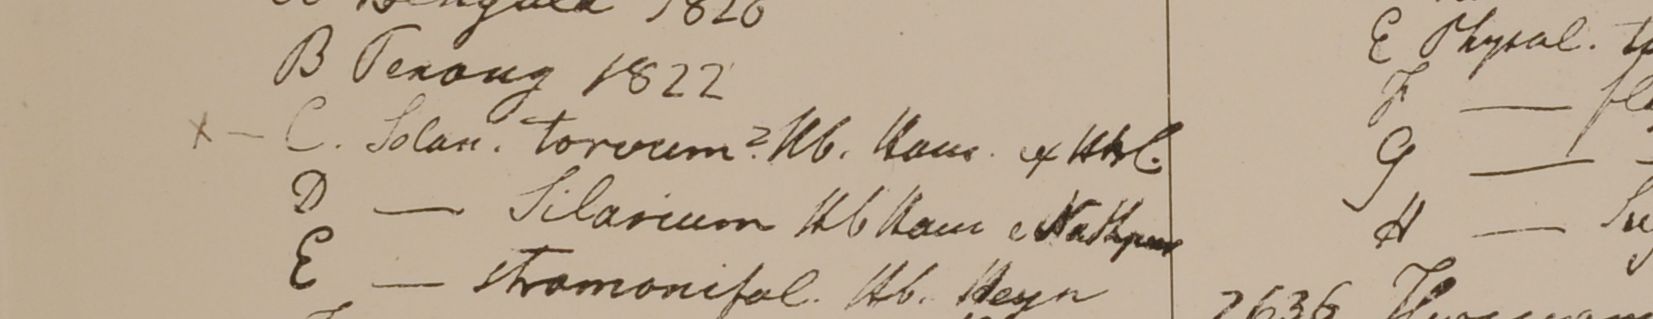 Bengala 1820
B Penang 1822
x — C. Solan. torvum? Hb. Ham. ex HBC.
D — Silarium Hb Ham e Nathpur
E — stramonifol. Hb. Heyn
E Physal.
F —
G —
H —
2636